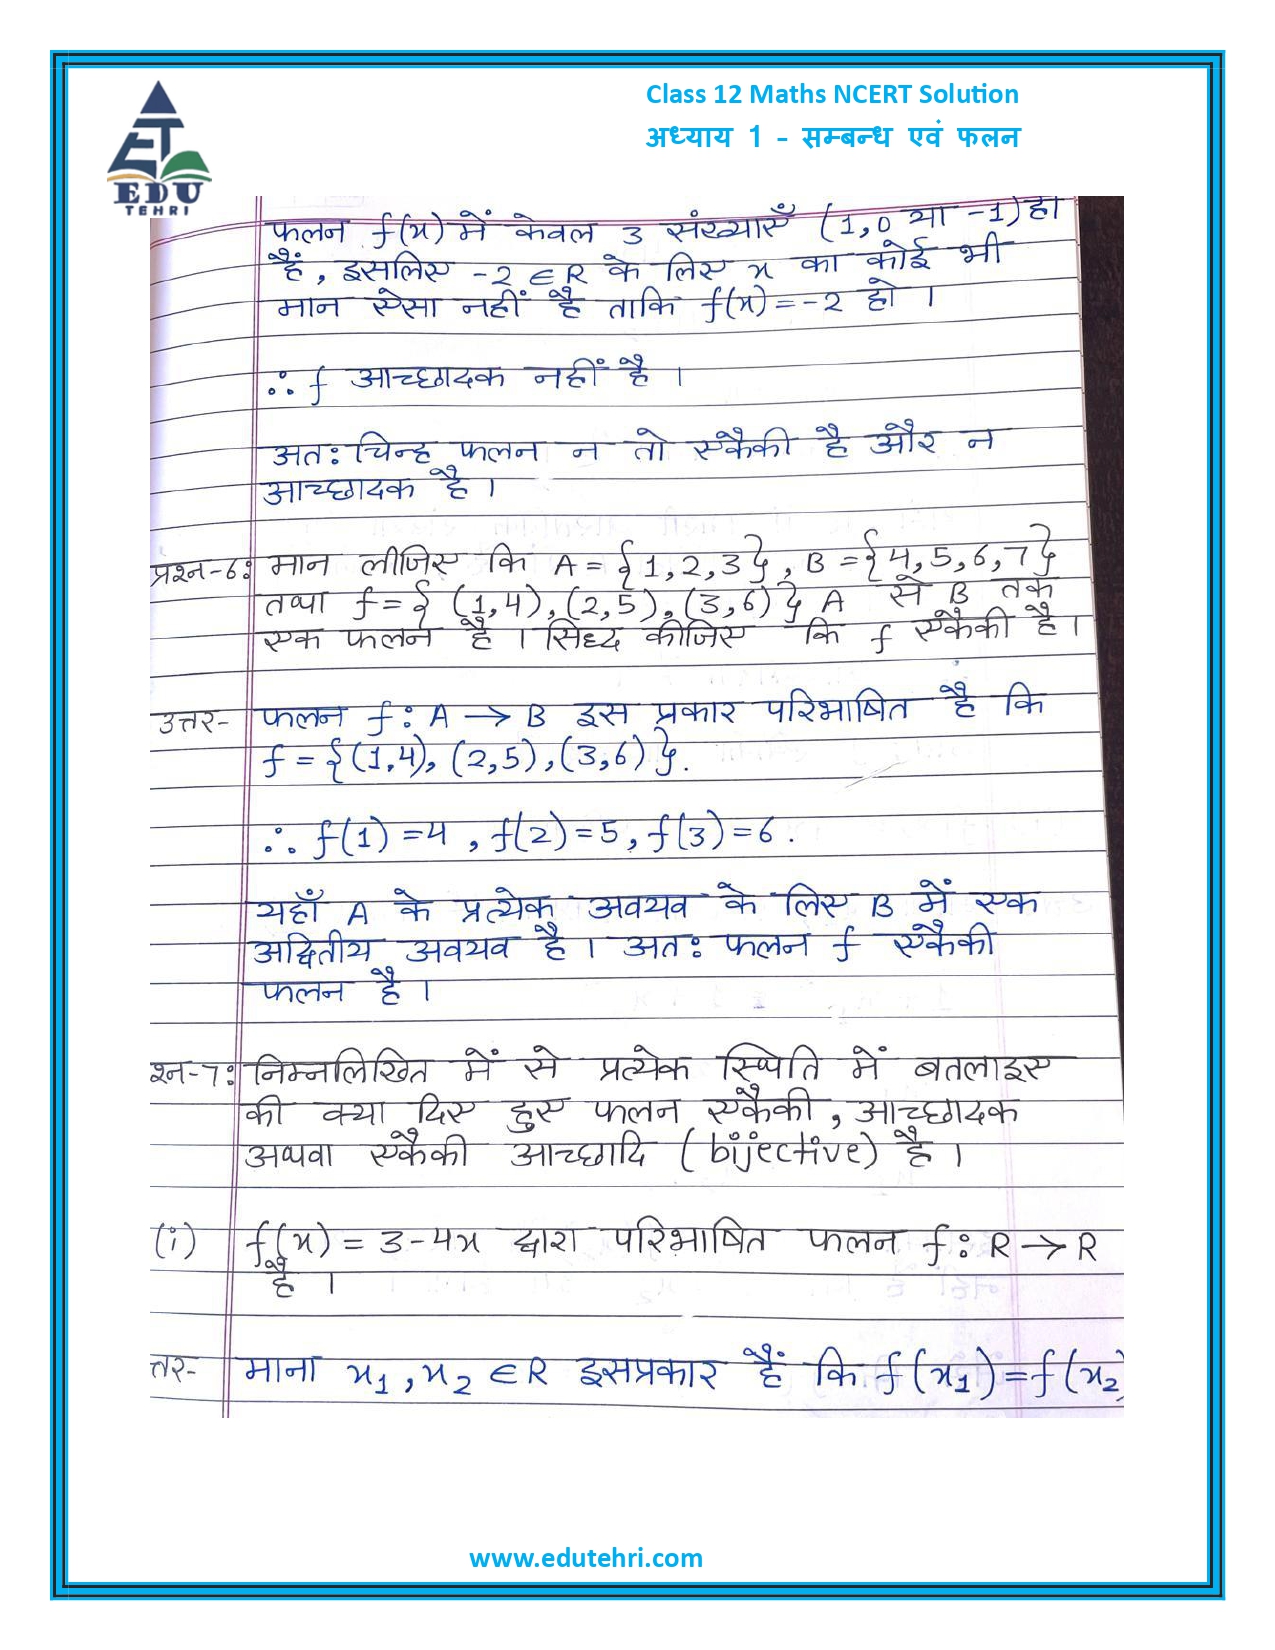 Class 12 Maths NCERT Solution
अध्याय 1 - सम्बन्ध एवं फलन
EDU
TEHRI
फलन f(x) में केवल 3 संख्याएँ (1,0 या -1) ही
हैं, इसलिए -2 ∈ R के लिए x का कोई भी
मान ऐसा नहीं है ताकि f(x) = -2 हो ।
∴ f आच्छादक नहीं है ।
अतः चिन्ह फलन न तो एकैकी है और न
आच्छादक है ।
प्रश्न-6: मान लीजिए कि A = {1, 2, 3}, B = {4, 5, 6, 7}
तथा f = { (1,4), (2,5), (3,6) } A से B तक
एक फलन है । सिध्द कीजिए कि f एकैकी है ।
उत्तर- फलन f : A → B इस प्रकार परिभाषित है कि
f = {(1,4), (2,5), (3,6)}.
∴ f(1) = 4 , f(2) = 5, f(3) = 6 .
यहाँ A के प्रत्येक अवयव के लिए B में एक
अद्वितीय अवयव है । अतः फलन f एकैकी
फलन है ।
श्न-7: निम्नलिखित में से प्रत्येक स्थिति में बतलाइए
की क्या दिए हुए फलन एकैकी, आच्छादक
अथवा एकैकी आच्छादि (bijective) है ।
(i) f(x) = 3-4x द्वारा परिभाषित फलन f : R → R
है ।
त्तर- माना x1, x2 ∈ R इसप्रकार हैं कि f(x1) = f(x2)
www.edutehri.com